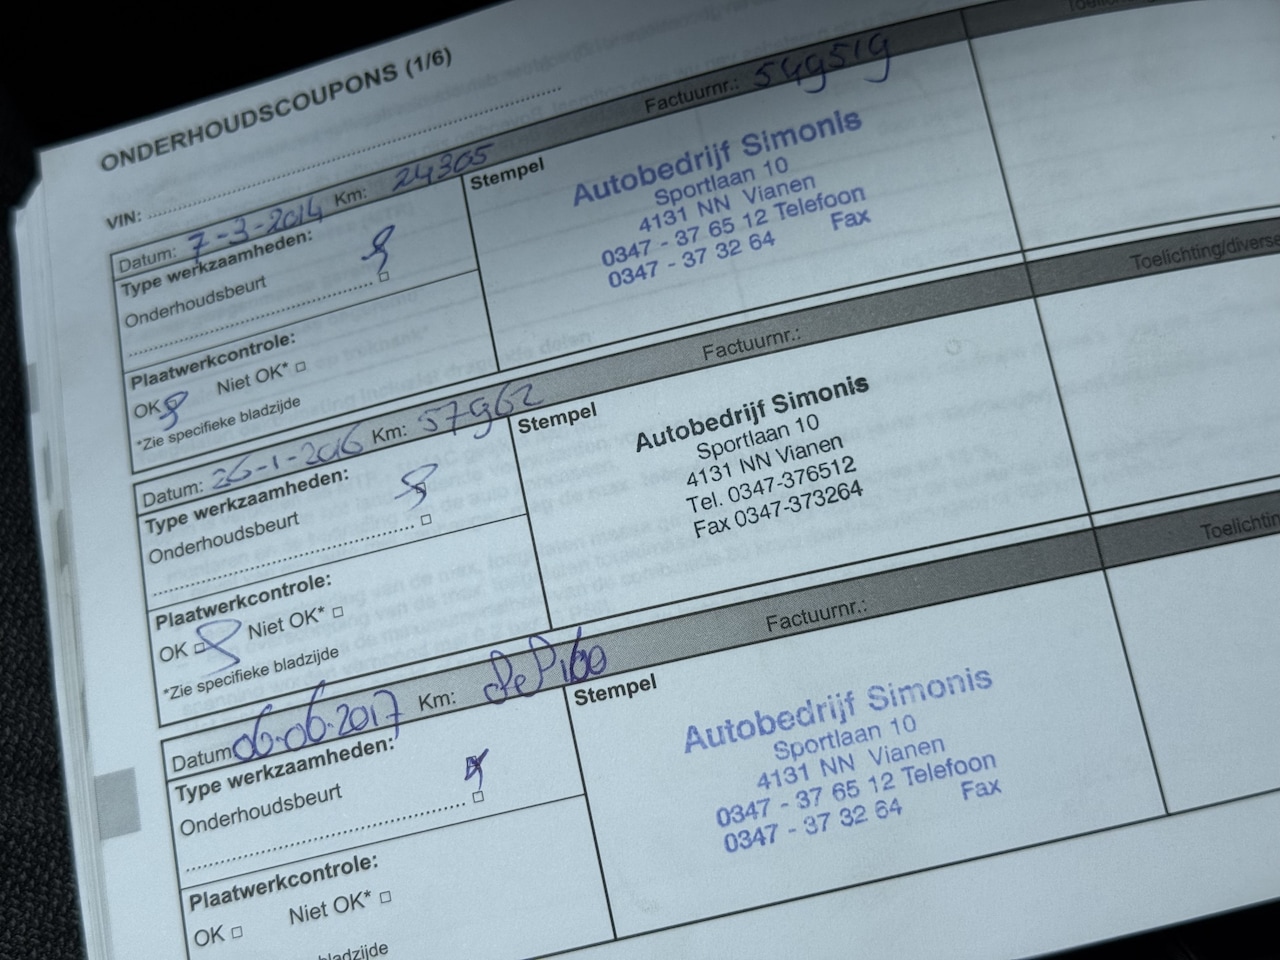 ONDERHOUDSCOUPONS (1/6)
VIN:
Datum: 7-3-2014 Km: 24365 Factuurnr.: 549519
Type werkzaamheden:
Onderhoudsbeurt
Plaatwerkcontrole:
OK Niet OK*
*Zie specifieke bladzijde
Stempel
Autobedrijf Simonis
Sportlaan 10
4131 NN Vianen
0347 - 37 65 12 Telefoon
0347 - 37 32 64 Fax
Datum: 26-1-2016 Km: 57962 Factuurnr.: Toelichting/diverse
Type werkzaamheden:
Onderhoudsbeurt
Plaatwerkcontrole:
OK Niet OK*
*Zie specifieke bladzijde
Stempel
Autobedrijf Simonis
Sportlaan 10
4131 NN Vianen
Tel. 0347-376512
Fax 0347-373264
Datum 06-06-2017 Km: Factuurnr.:
Type werkzaamheden:
Onderhoudsbeurt
Plaatwerkcontrole:
OK Niet OK*
bladzijde
Stempel
Autobedrijf Simonis
Sportlaan 10
4131 NN Vianen
0347 - 37 65 12 Telefoon
0347 - 37 32 64 Fax